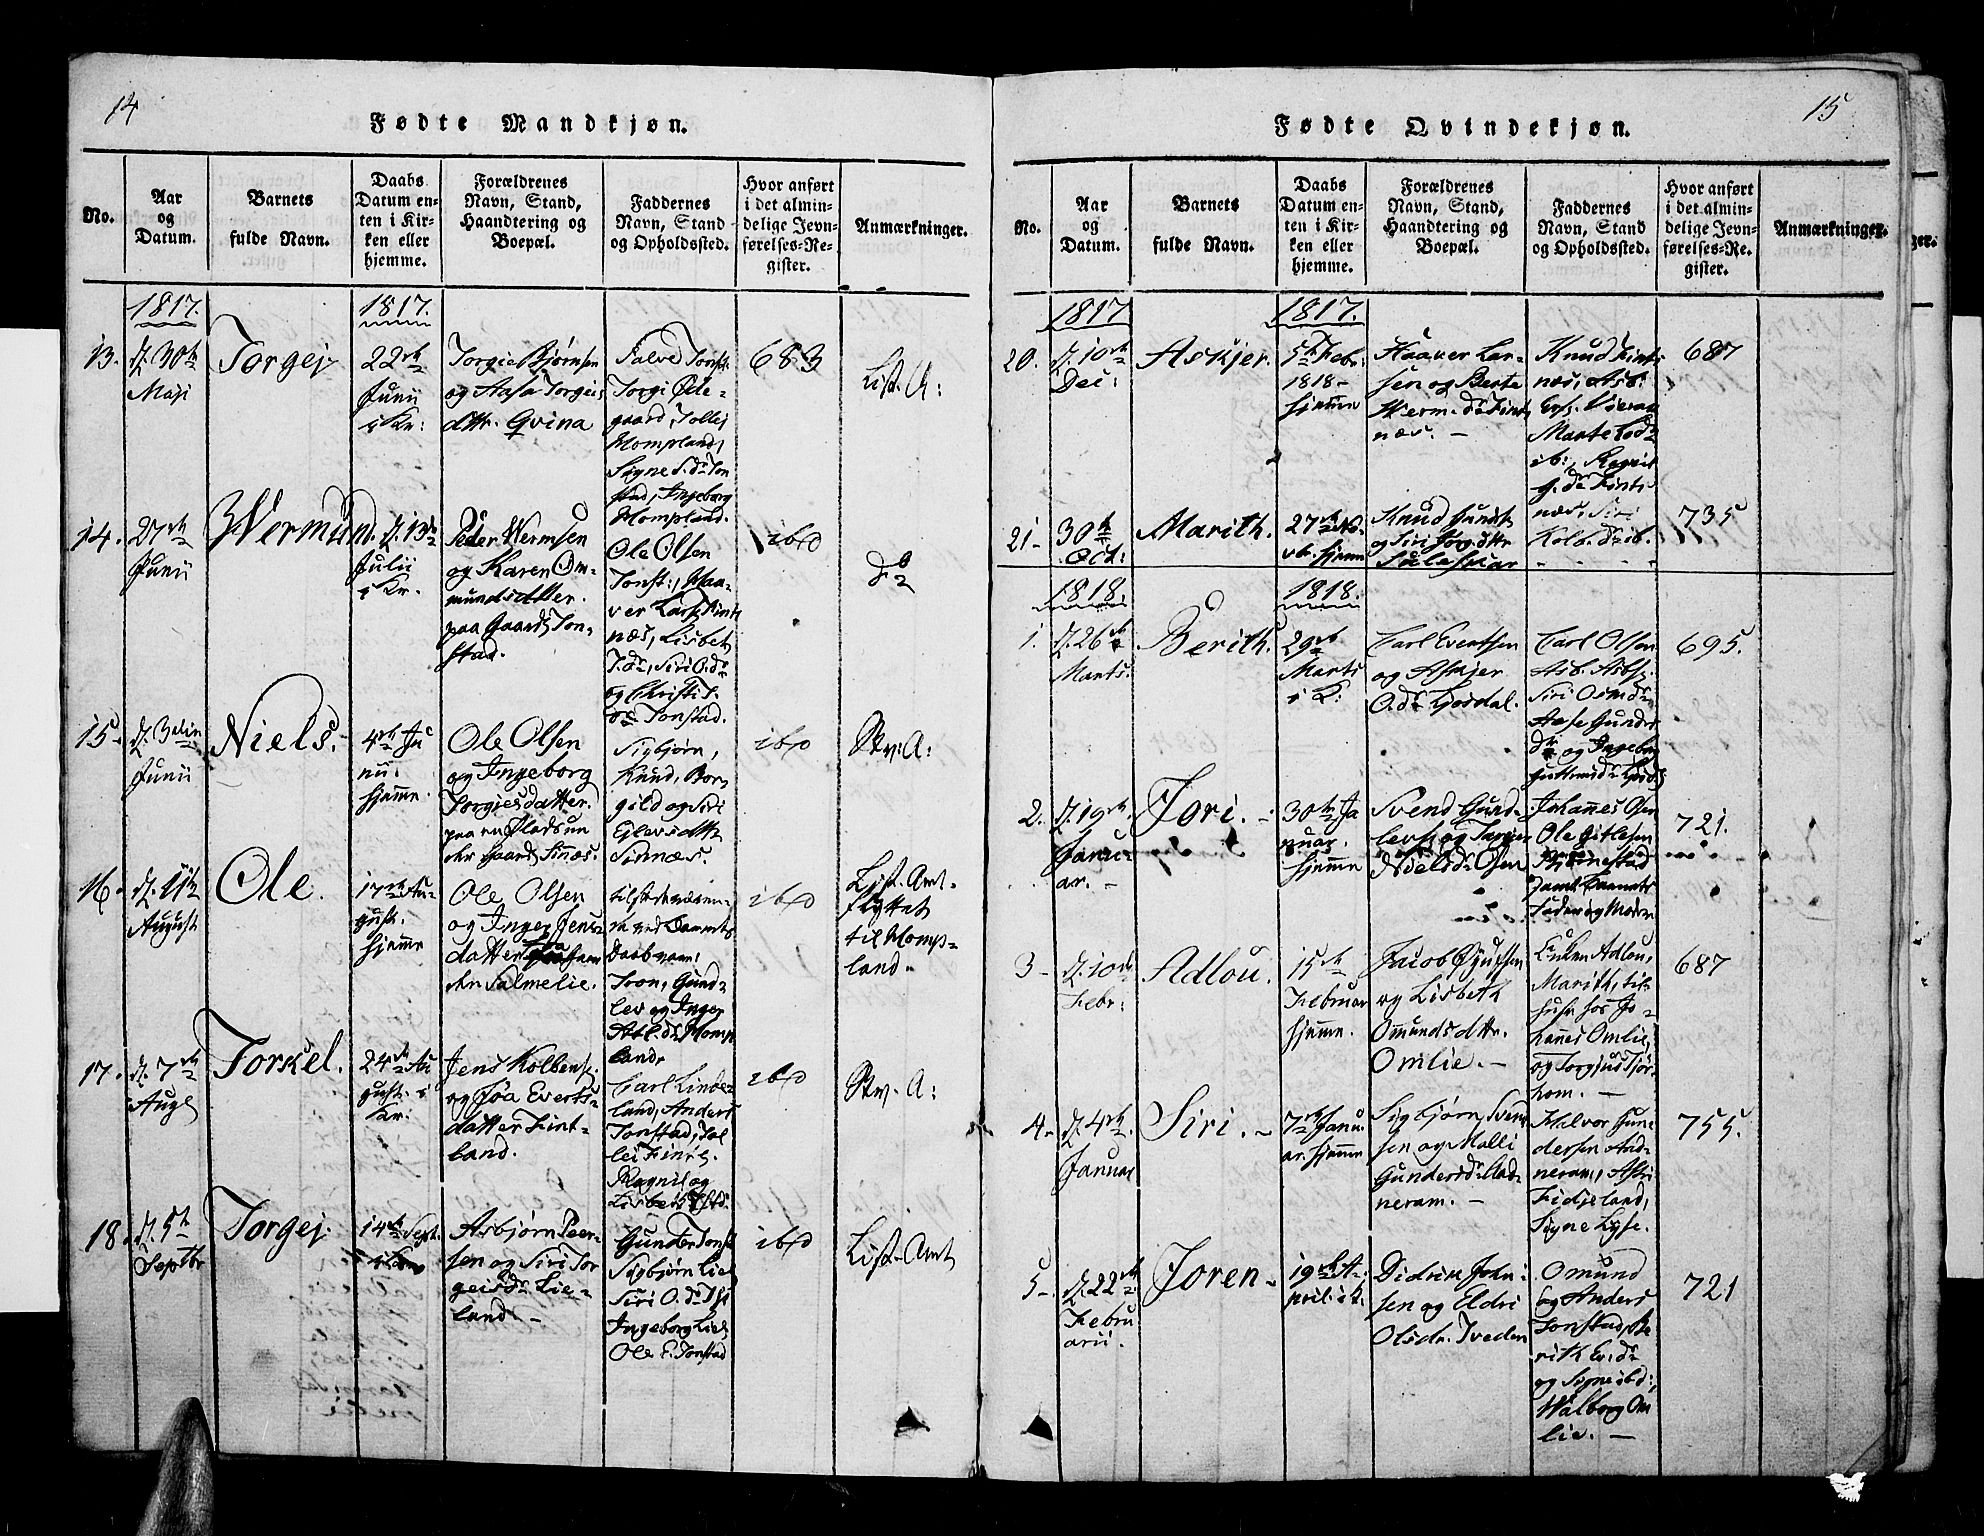 14
Fødte Mandkjøn.
No.
Aar
og
Datum.
Barnets
fulde Navn.
Daabs
Datum en-
ten i Kir-
ken eller
hjemme.
Forældrenes
Navn, Stand,
Haandtering og
Boepæl.
Faddernes
Navn, Stand
og Opholdssted.
Hvor anført
i det almin-
delige Jevn-
førelses-Re-
gister.
Anmærkninger.
1817.
1817.
13.
d. 30te
Maji
Torgej
22de
Junii
i Kr:
Torgie Bjørnsen
og Aasa Torgeis
dttr. Qvina
Salve Tonst.
Torgi Øde-
gaard, Tollej
Mompland,
Signe S. dr Ton
stad, Ingeborg
Mompland.
683
List. A:
14.
27de
Junii
Wermund.
d. 13de
Julii
i Kr.
Peder Wermsen
og Karen Om-
mundsdatter.
paa Gaard Ton-
stad.
Ole Olsen
Tonst:, Haa-
ver Lars. Fint
næs, Lisbet
T. dr, Siri O. dr
og Christi T.
dr Tonstad.
ibd
do
15
Junii
Niels.
4de Ju
nii.
hjemme.
Ole Olsen
og Ingeborg
Torgiesdatter.
paa en Pladsun
der Gaard Sinnæs.
Sigbjørn,
Knud, Bor-
gild og Siri
Elevsdttr
Sinnæs.
ibd
Stv. A:
16
d. 11te
August
Ole.
17de Au-
gust.
hjemme
Ole Olsen
og Inger Jens-
datter
Salmelie.
Daab vare:
Toon, Gund-
lev og Inger
Momp
land,
ibd
List. Amt.
flyttet
til Momp-
land.
17.
d. 7de
Aug
Torkel.
24de Au
gust. i
Kr.
Jens Kolbens.
og Joa Everts-
datter Fint-
land.
Carl Linde-
land, Anders
Tonstad, Tol
lei Fintl.
Ragnil og
Lisbet
ibd
Stv. A:
18.
d. 5te
Septbr
Torgej
14de Sept.
Asbjørn Peer-
sen og Siri Tor
geisdr. Lie-
land. -
Gunder Tonst
Sigbjørn Liel
Siri O. dr
Ingeborg Liel
Ole T. Tonstad
ibd
List. Amt
15
Fødte Qvindekjøn.
No.
Aar
og
Datum.
Barnets
fulde Navn.
Daabs
Datum en-
ten i Kir-
ken eller
hjemme.
Forældrenes
Navn, Stand,
Haandtering og
Boepæl.
Faddernes
Navn, Stand
og Opholdssted.
Hvor anført
i det almin-
delige Jevn-
førelses-Re-
gister.
Anmærkninger.
1817
1817.
20.
d. 10de
Dec:
Askjer.
5te Feb:
1818-
hjemme
Haaver Lar-
sen og Berte
Werm. dr Fint
næs. -
Knud Fint-
næs, Asb:
Marte
ib:, Ragnil
G. dr Fint-
næs, Siri
Kolb. dr ib.
687
21-
30te
Oct:
Marith.
27de No
vb. hjemm
Knud
og Siri Torg. dttr
735
1818.
1818.
1.
d. 26de
Marts.
Berith.
29de
Marts
i K:
Carl Evertsen
og Askjer
O. dr Josdal.
Carl Olsen
Asb. Asbj.
Siri Osm dr
Aase Gunder
dr og Ingeborg
695.
2.
d. 19de
Janu-
ar. -
Jori. -
30te Ja
nuar.
hjemme
Svend Gund-
levs. og
Nielsdr. Osen
Johannes Osen
Ole Gitlesen
samt Barnets
Fader og Moder
721.
3-
d. 10de
Febr:
Adlou.
15de
Februar
hjemme.
Jacob
og Lisbeth
Ommundsdttr.
Omlie. -
Adlou,
Marith, til-
huse hos Jo-
hannes Omlie,
og Torgjus Tjør-
hom. -
687
4-
d. 4de
Januar
Siri. -
7de Janu.
ar. hjemme
Sigbjørn Svend
sen og Malli
Gundersdr. Aad-
neram. -
Halvor Gun-
dersen Aad-
neram, Asbi
Fidjeland,
Signe Lyse.
755.
5-
d. 22de
Febru
arii.
Joren-
19de A-
pril i K.
Didrik John-
sen og Eldri
Olsdr. Tveden
Omund
og Anders
Tonstad, Be-
rith Ev: dr
og Signe ibd:,
Walborg Om
lie. -
721